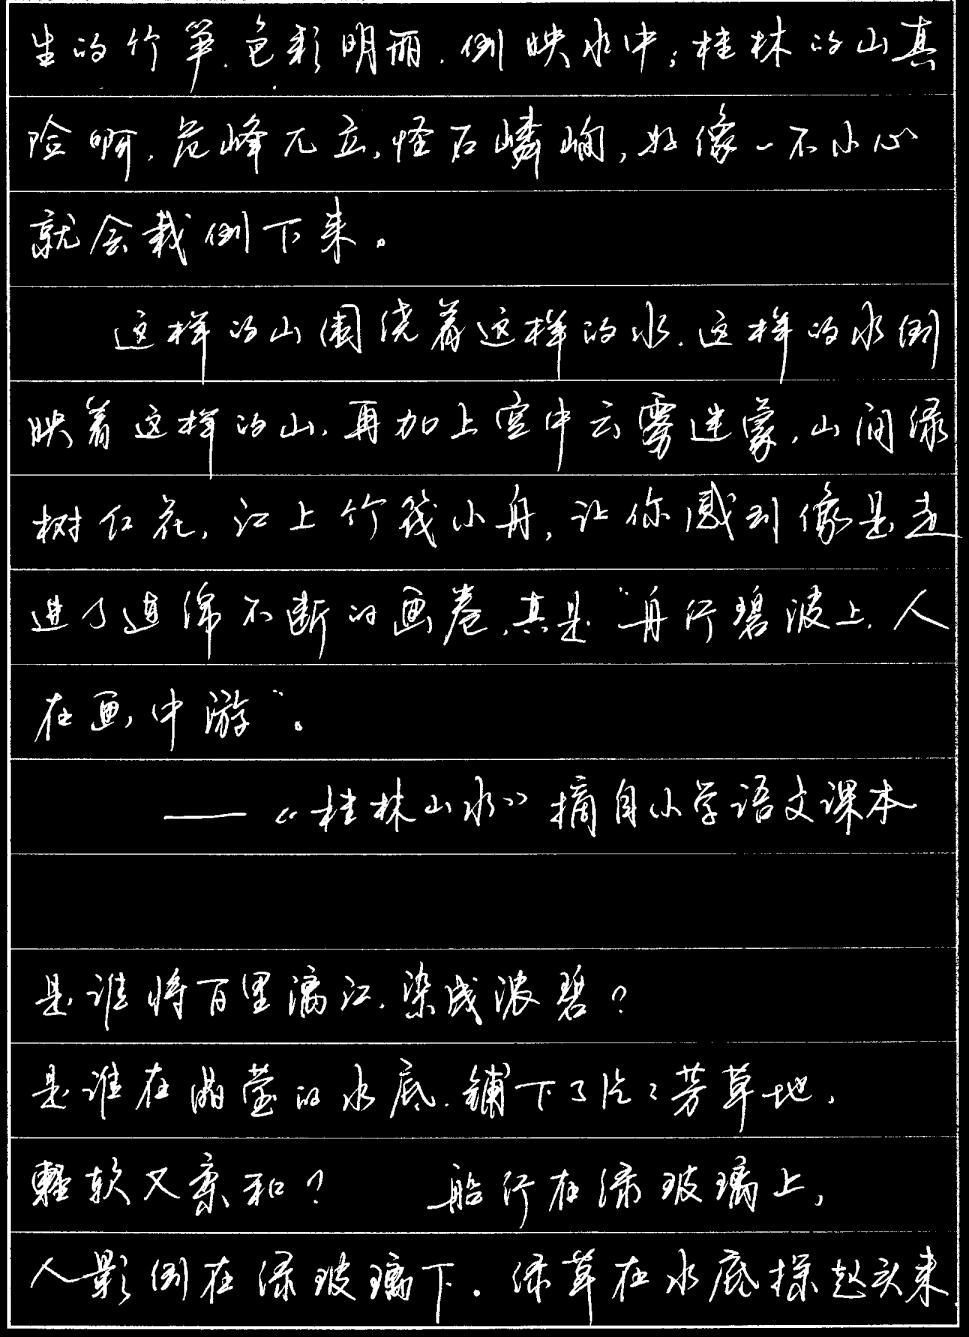 生的竹笋,色彩明丽,倒映水中;桂林的山真
险啊,危峰兀立,怪石嶙峋,好像一不小心
就会栽倒下来。
这样的山围绕着这样的水,这样的水倒
映着这样的山,再加上空中云雾迷蒙,山间绿
树红花,江上竹筏小舟,让你感到像是走
进了连绵不断的画卷,真是“舟行碧波上,人
在画中游”。
——《桂林山水》摘自小学语文课本
是谁将百里漓江,染成浓碧?
是谁在晶莹的水底,铺下了片々芳草地,
轻软又柔和? 船行在绿玻璃上,
人影倒在绿玻璃下。绿草在水底探起头来